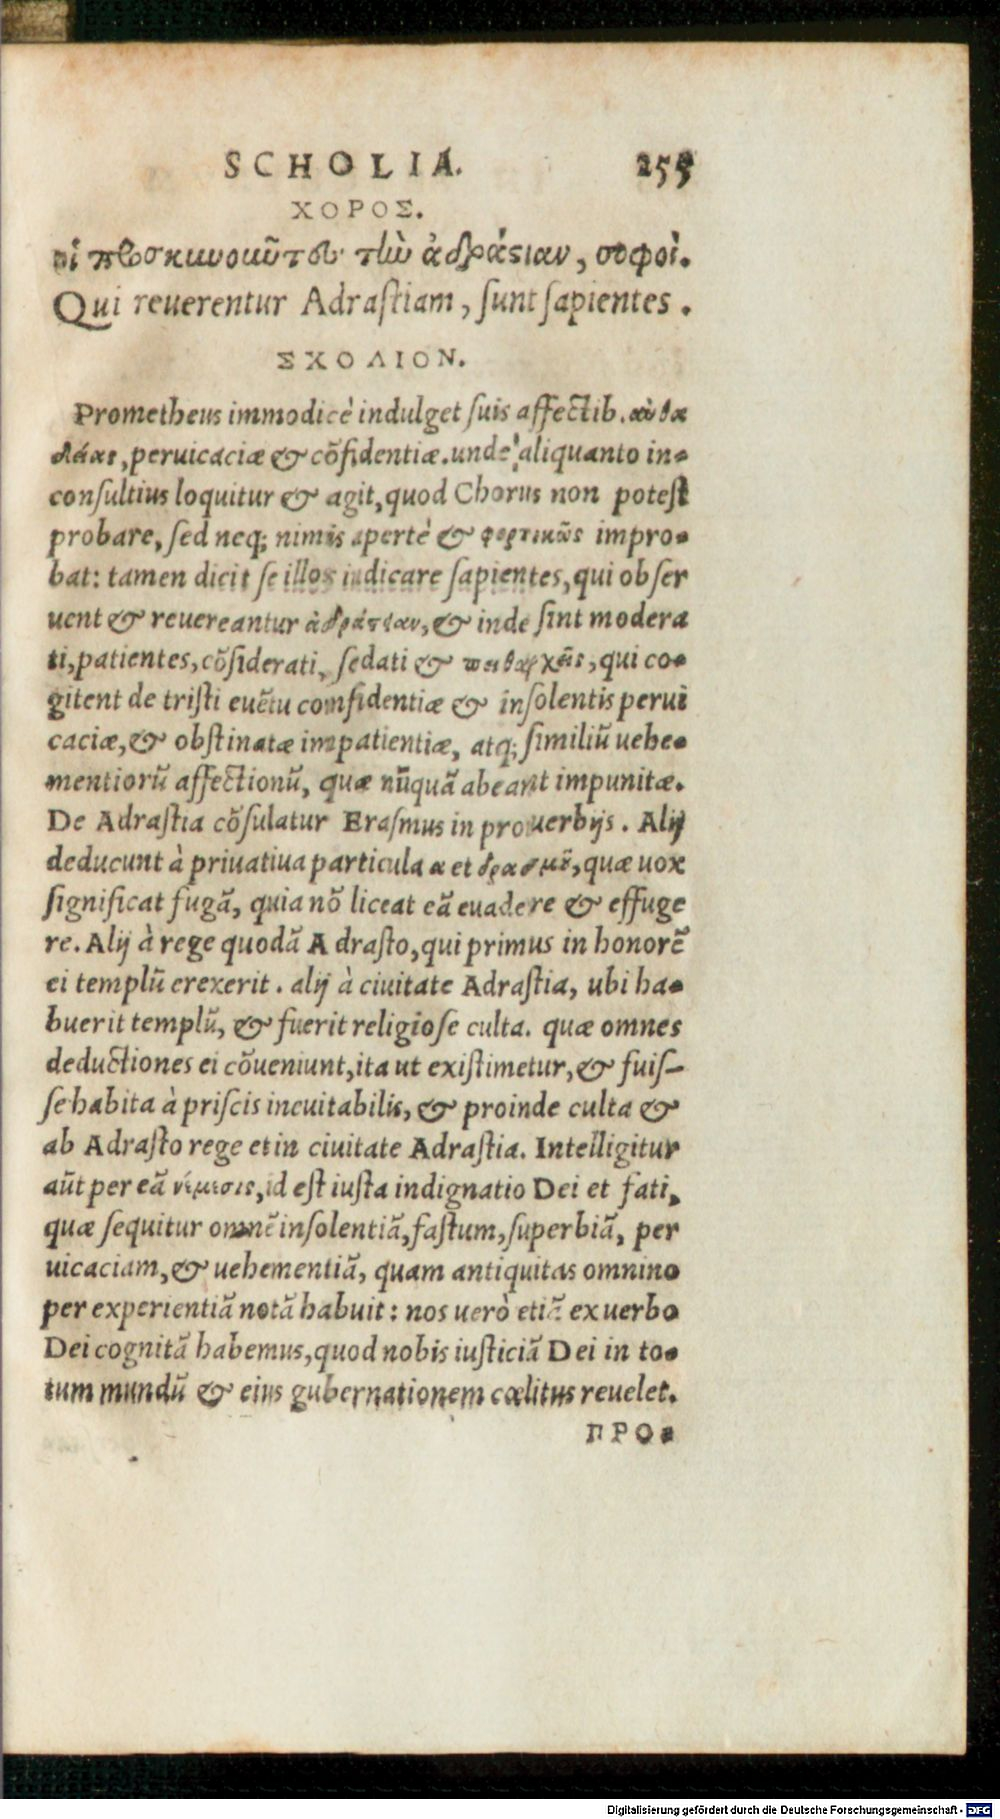 SCHOLIA. 255
ΧΟΡΟΣ.
οἱ προσκυνοῦντες τὴν ἀδράστιαν, σοφοὶ.
Qui reuerentur Adraſtiam, ſunt ſapientes.
ΣΧΟΛΙΟΝ.
Prometheus immodicè indulget ſuis affectib. αὐθα
δείας, peruicaciæ & cõfidentiæ. unde aliquanto in-
conſultius loquitur & agit, quod Chorus non poteſt
probare, ſed neq; nimis apertè & φορτικῶς impro-
bat: tamen dicit ſe illos iudicare ſapientes, qui obſer
uent & reuereantur ἀδράστιαν, & inde ſint modera
ti, patientes, cõſiderati, ſedati & πειθαρχεῖς, qui co-
gitent de triſti euẽtu confidentiæ & inſolentis perui
caciæ, & obſtinatæ impatientiæ, atq; ſimiliũ uehe-
mentiorũ affectionũ, quæ nũquã abeant impunitæ.
De Adraſtia cõſulatur Eraſmus in prouerbijs. Alij
deducunt à priuatiua particula α et δρασμῦ, quæ uox
ſignificat fugã, quia nõ liceat eã euadere & effuge
re. Alij à rege quodã Adraſto, qui primus in honorẽ
ei templũ erexerit. alij à ciuitate Adraſtia, ubi ha-
buerit templũ, & fuerit religioſe culta. quæ omnes
deductiones ei cõueniunt, ita ut exiſtimetur, & fuiſ-
ſe habita à priſcis ineuitabilis, & proinde culta &
ab Adraſto rege et in ciuitate Adraſtia. Intelligitur
aũt per eã νέμεσις, id eſt iuſta indignatio Dei et fati,
quæ ſequitur omnẽ inſolentiã, faſtum, ſuperbiã, per
uicaciam, & uehementiã, quam antiquitas omnino
per experientiã notã habuit: nos uerò etiã ex uerbo
Dei cognitã habemus, quod nobis iuſticiã Dei in to-
tum mundũ & eius gubernationem cœlitus reuelet.
ΠΡΟ-
Digitalisierung gefördert durch die Deutsche Forschungsgemeinschaft - DFG